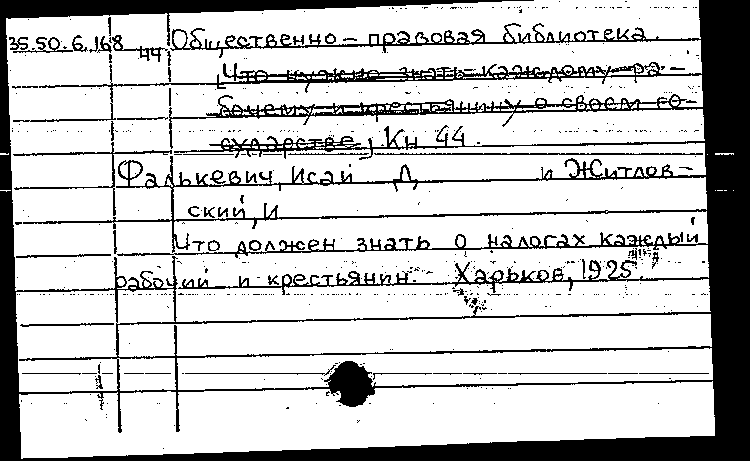 35.50.6.168 44 Общественно-правовая библиотека.
[Что нужно знать каждому ра-
бочему и крестьянину о своем го-
сударстве], Кн 44.
Фалькевич, Исаи Д и Житлов-
ский, И
Что должен знать о налогах каждый
рабочий и крестьянин. Харьков, 1925.